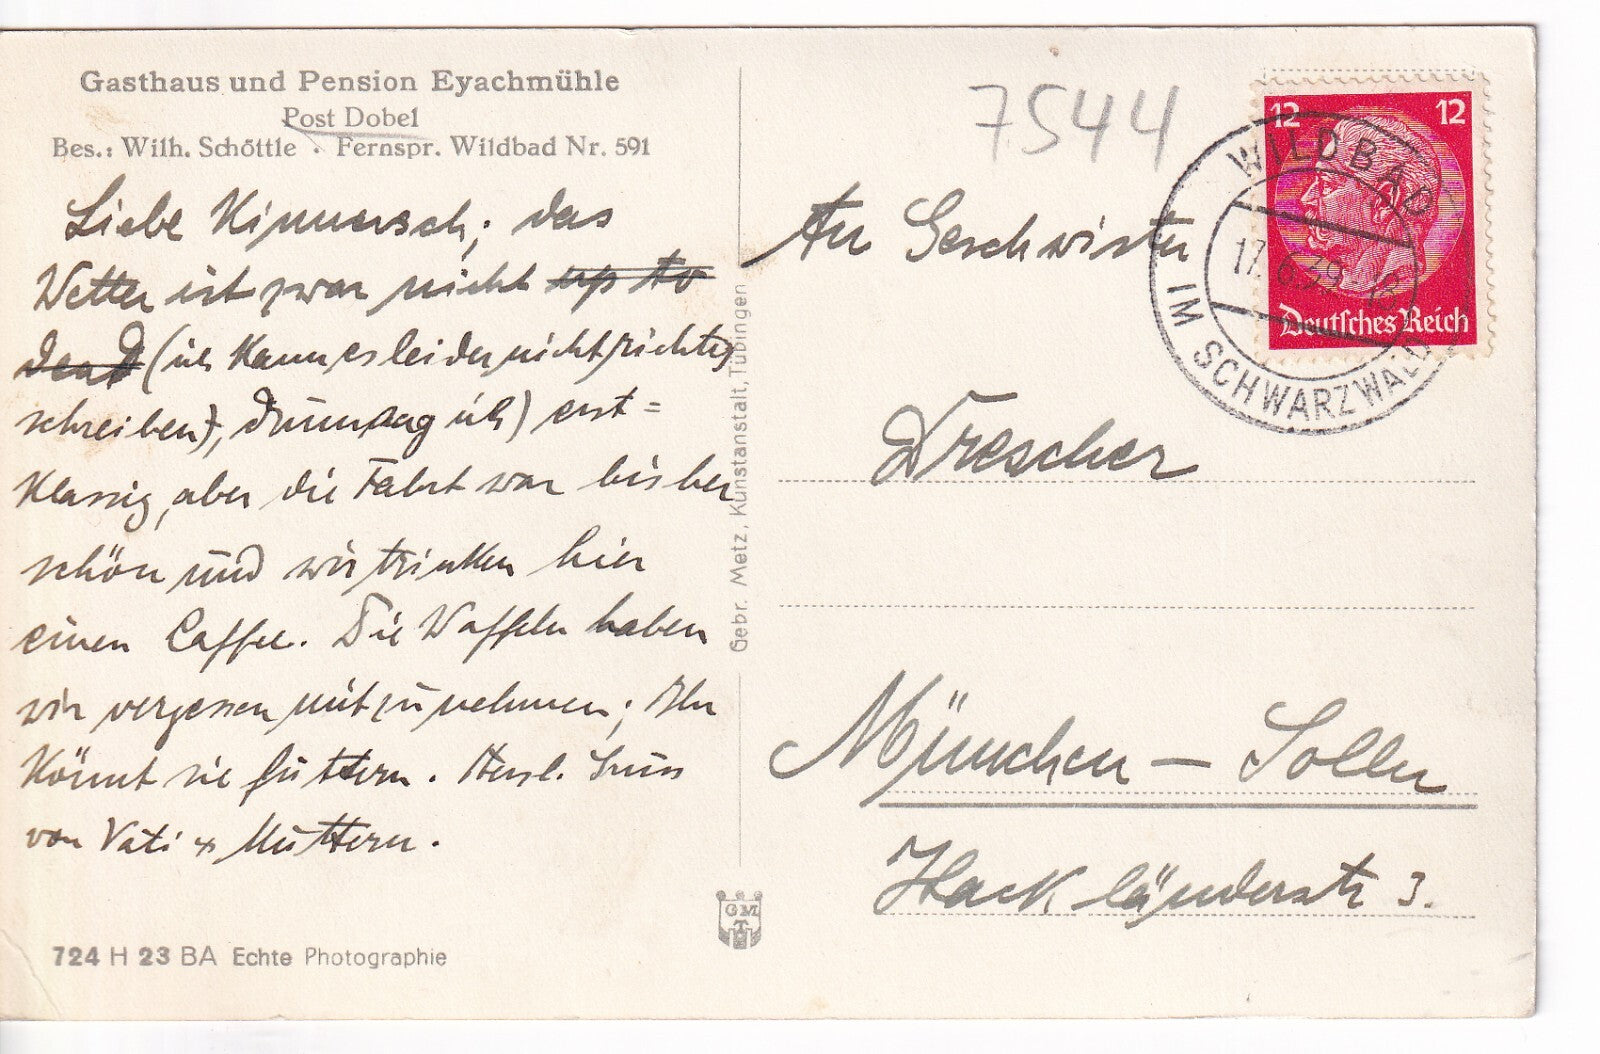 Gasthaus und Pension Eyachmühle
Post Dobel
Bes.: Wilh. Schöttle · Fernspr. Wildbad Nr. 591
Liebe das
Wetter ist zwar nicht up to
(ich kann es leider nicht richtig
schreiben), drum sag ich) erst=
klassig, aber die Fahrt war bisher
schön und wir trinken hier
einen Caffee. Die Waffeln haben
wir vergessen mitzunehmen; Ihr
könnt sie futtern. Herzl. Gruss
von Vati & Muttern.
724 H 23 BA Echte Photographie
Gebr. Metz, Kunstanstalt, Tübingen
GMT
7544
12 12
Deutsches Reich
WILDBAD
17.6.39
IM SCHWARZWALD
An Geschwister
Drescher
München - Solln
Hackländerstr 3.